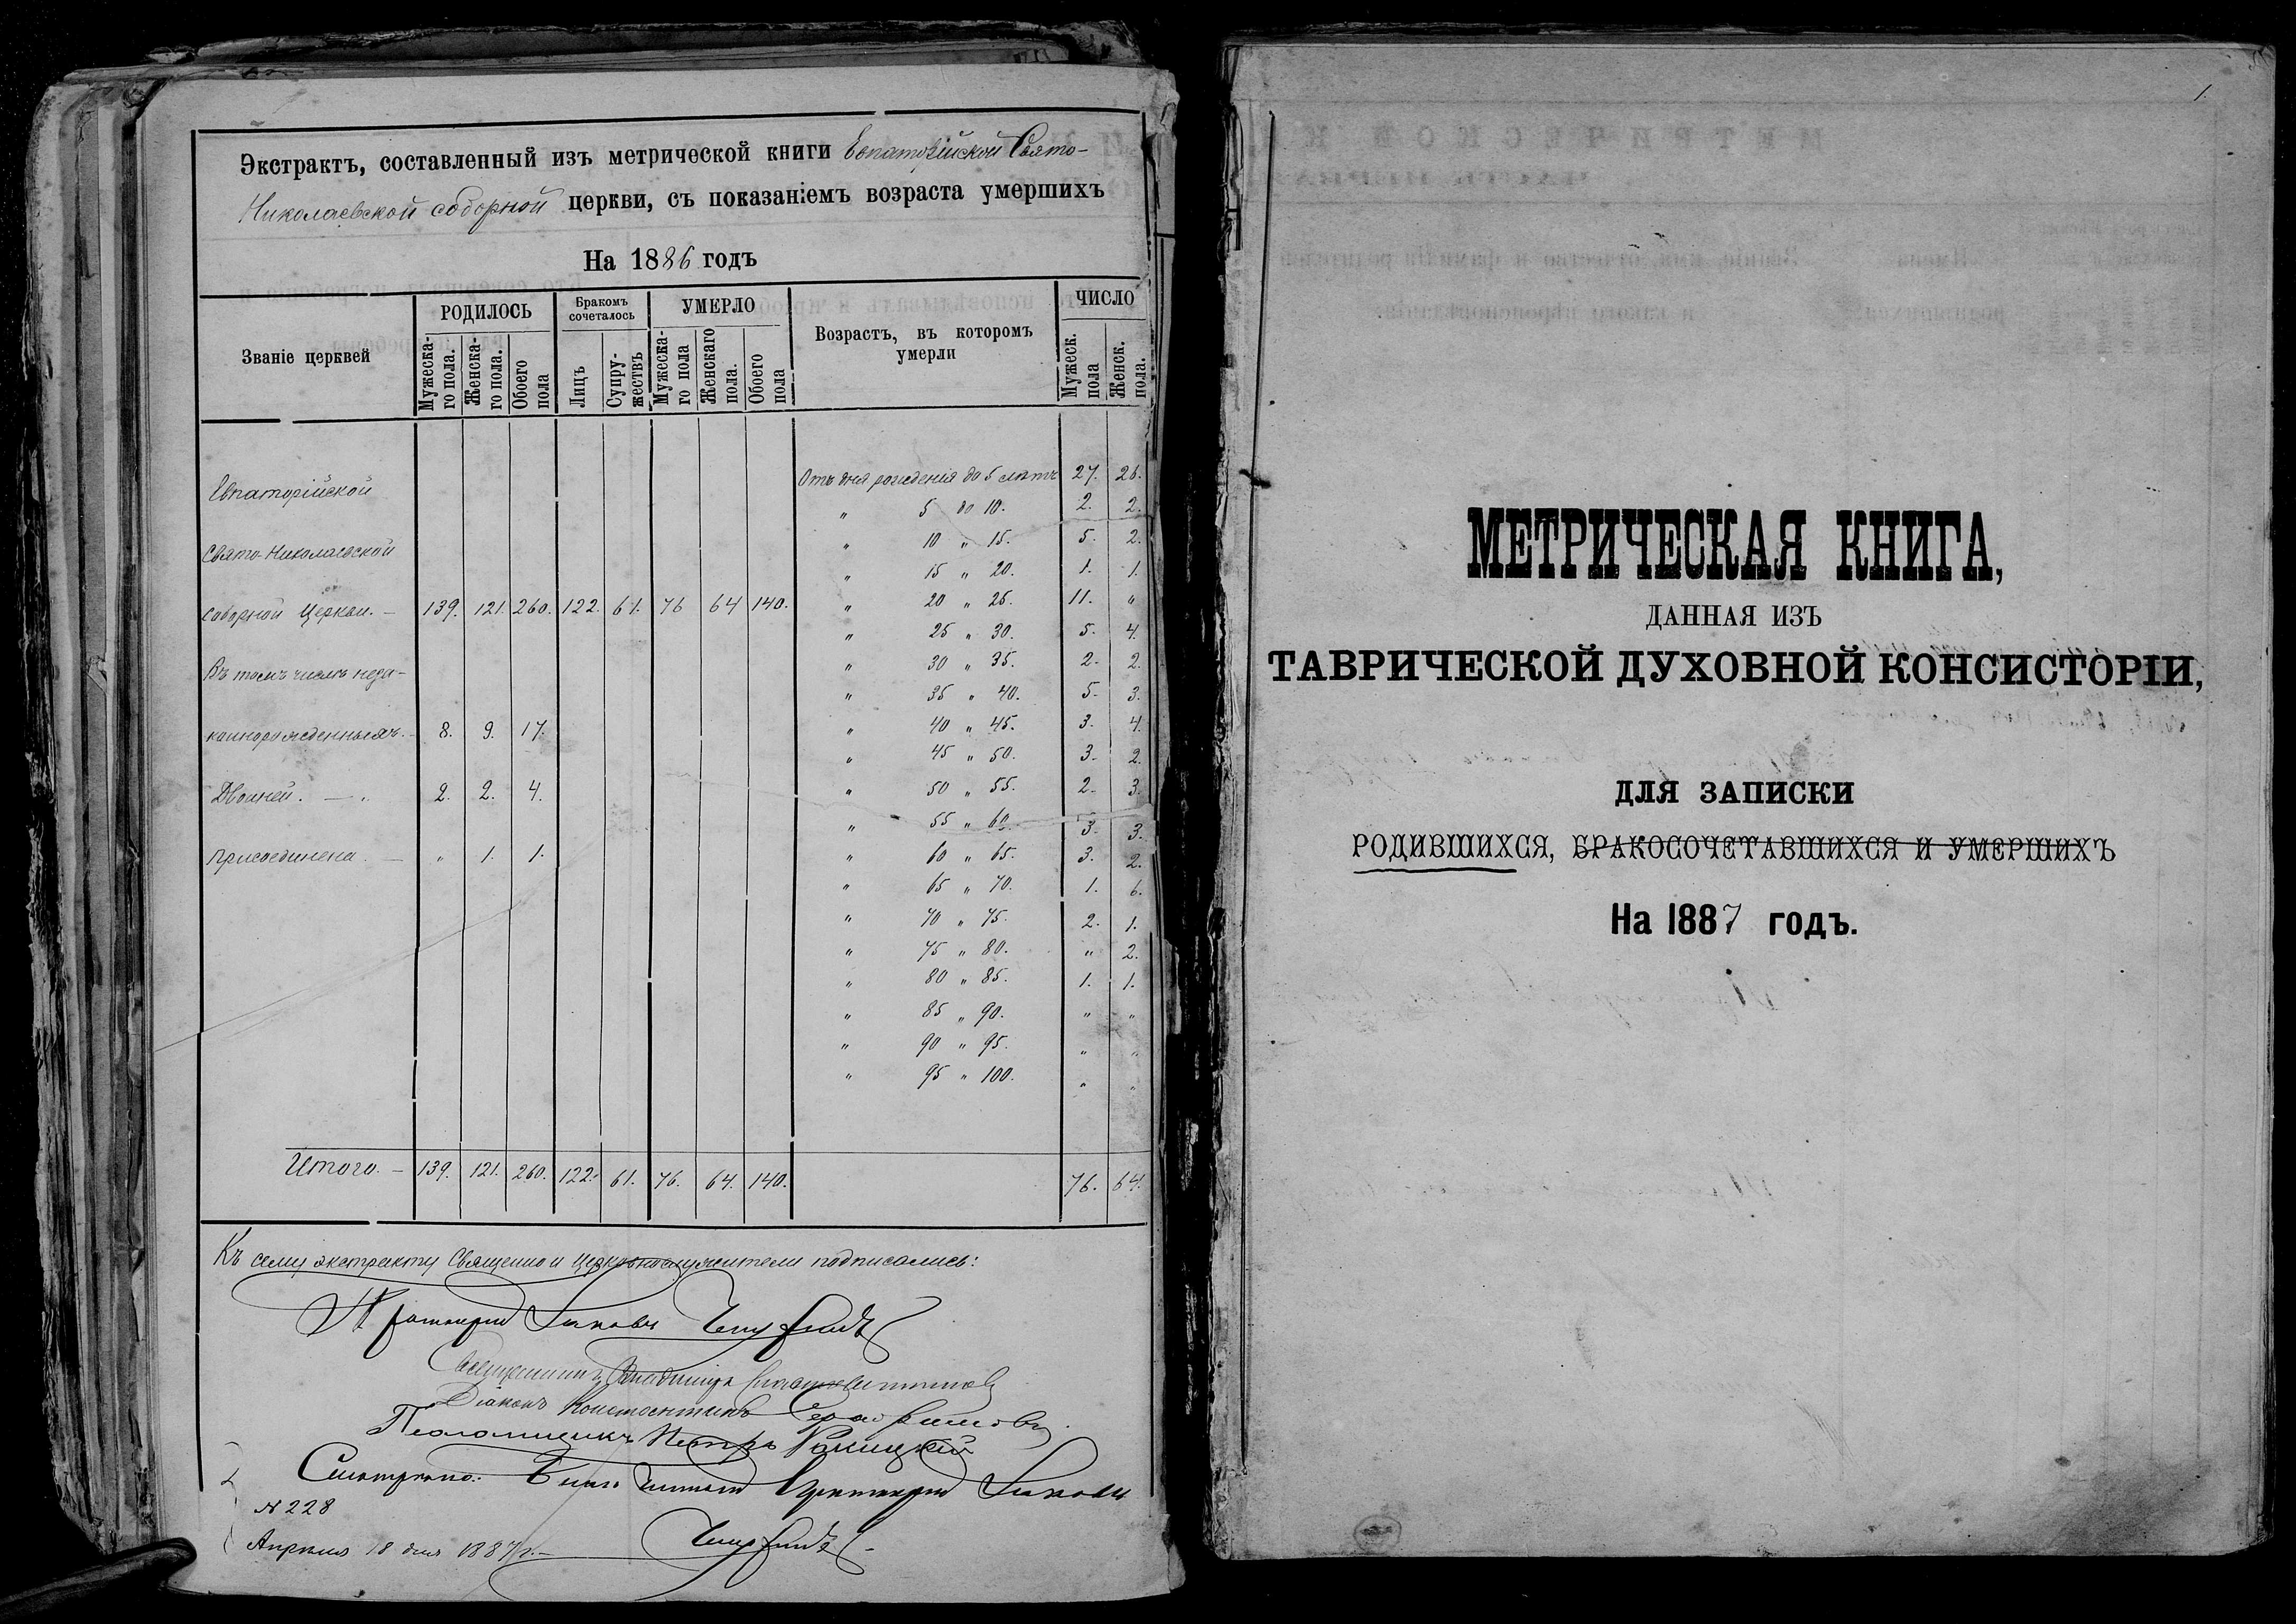 Экстрактъ, составленный изъ метрической книги Евпаторійской Свято-
Николаевской соборной церкви, съ показаніемъ возраста умершихъ
На 1886 годъ
Званіе церквей
РОДИЛОСЬ
Мужеска-
го пола.
Женска-
го пола.
Обоего
пола
Бракомъ
сочеталось
Лицъ
Супру-
жествъ
УМЕРЛО
Мужеска-
го пола
Женскаго
пола.
Обоего
пола
Возрастъ, въ которомъ
умерли
ЧИСЛО
Мужеск.
пола
Женск.
пола.
Отъ дня рожденія до 5 лѣтъ 27. 26.
Евпаторійской
" 5 до 10. 2. 2.
" 10 " 15. 5. 2.
Свято-Николаевской
" 15 " 20. 1. 1.
соборной Церкви. — 139. 121. 260. 122. 61. 76 64 140. " 20 " 25. 11. "
" 25 " 30. 5. 4.
" 30 " 35. 2. 2.
Въ томъ числѣ неза-
" 35 " 40. 5. 3.
" 40 " 45. 3. 4.
коннорожденныхъ. 8. 9. 17.
" 45 " 50. 3. 2.
" 50 " 55. 2. 3.
Двоиней. — " 2. 2. 4.
" 55 " 60. 3. 3.
Присоединена. — " 1. 1. " 60 " 65. 3. 2.
" 65 " 70. 1. 6.
" 70 " 75. 2. 1.
" 75 " 80. " 2.
" 80 " 85. 1. 1.
" 85 " 90. " "
" 90 " 95. " "
" 95 " 100. " "
Итого. — 139. 121. 260. 122. 61. 76. 64. 140. 76. 64.
Къ сему экстракту Священно и церковнослужители подписались:
Протоіерей Іаковъ Чепуринъ
Священникъ
Діаконъ Константинъ Серафимовъ
Псаломщикъ Петръ Ракицкій
Смотрѣно: Благочинный Протоіерей Іаковъ
Чепуринъ
N 228
Апрѣля 18 дня 1887 г. —
1.
МЕТРИЧЕСКАЯ КНИГА,
ДАННАЯ ИЗЪ
ТАВРИЧЕСКОЙ ДУХОВНОЙ КОНСИСТОРІИ,
ДЛЯ ЗАПИСКИ
РОДИВШИХСЯ, БРАКОСОЧЕТАВШИХСЯ И УМЕРШИХЪ
На 1887 годъ.